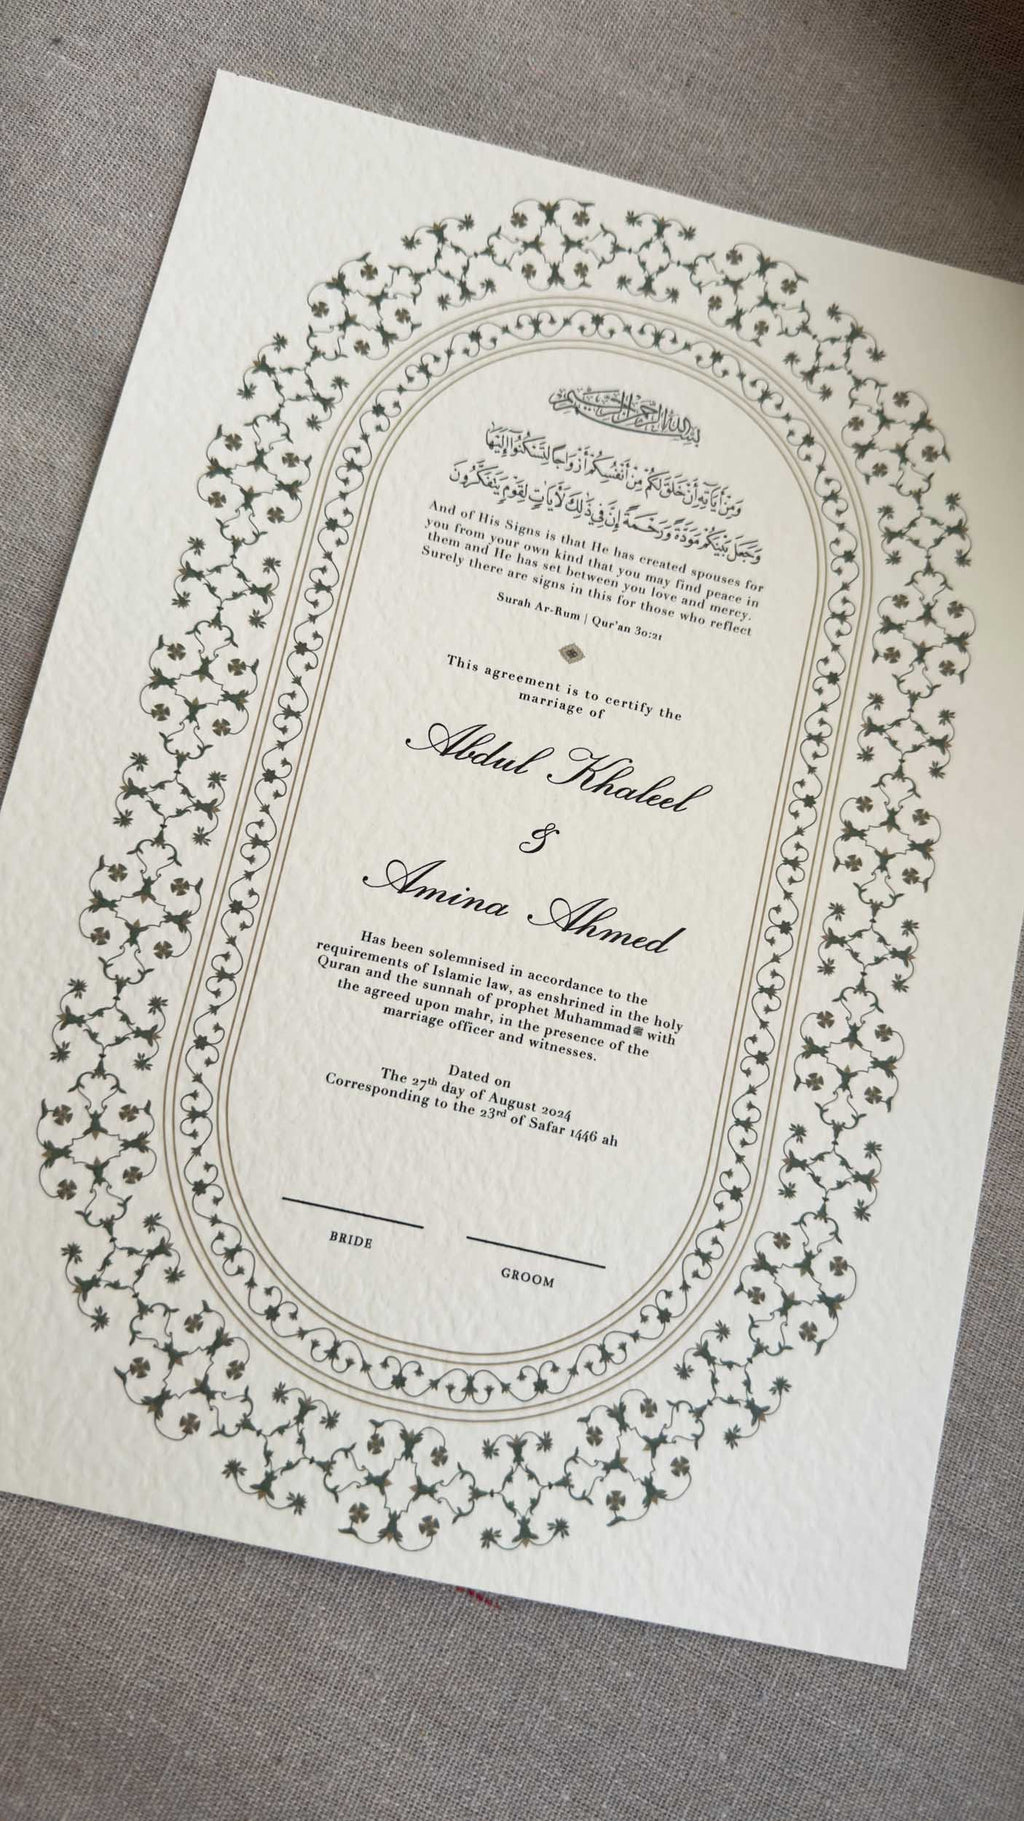 بسم الله الرحمن الرحيم
وَمِنْ آيَاتِهِ أَنْ خَلَقَ لَكُمْ مِنْ أَنْفُسِكُمْ أَزْوَاجًا لِتَسْكُنُوا إِلَيْهَا
وَجَعَلَ بَيْنَكُمْ مَوَدَّةً وَرَحْمَةً إِنَّ فِي ذَٰلِكَ لَآيَاتٍ لِقَوْمٍ يَتَفَكَّرُونَ
And of His Signs is that He has created spouses for
you from your own kind that you may find peace in
them and He has set between you love and mercy.
Surely there are signs in this for those who reflect
Surah Ar-Rum | Qur'an 30:21
This agreement is to certify the
marriage of
Abdul Khaleel
&
Amina Ahmed
Has been solemnised in accordance to the
requirements of Islamic law, as enshrined in the holy
Quran and the sunnah of prophet Muhammadﷺ with
the agreed upon mahr, in the presence of the
marriage officer and witnesses.
Dated on
The 27th day of August 2024
Corresponding to the 23rd of Safar 1446 ah
BRIDE
GROOM